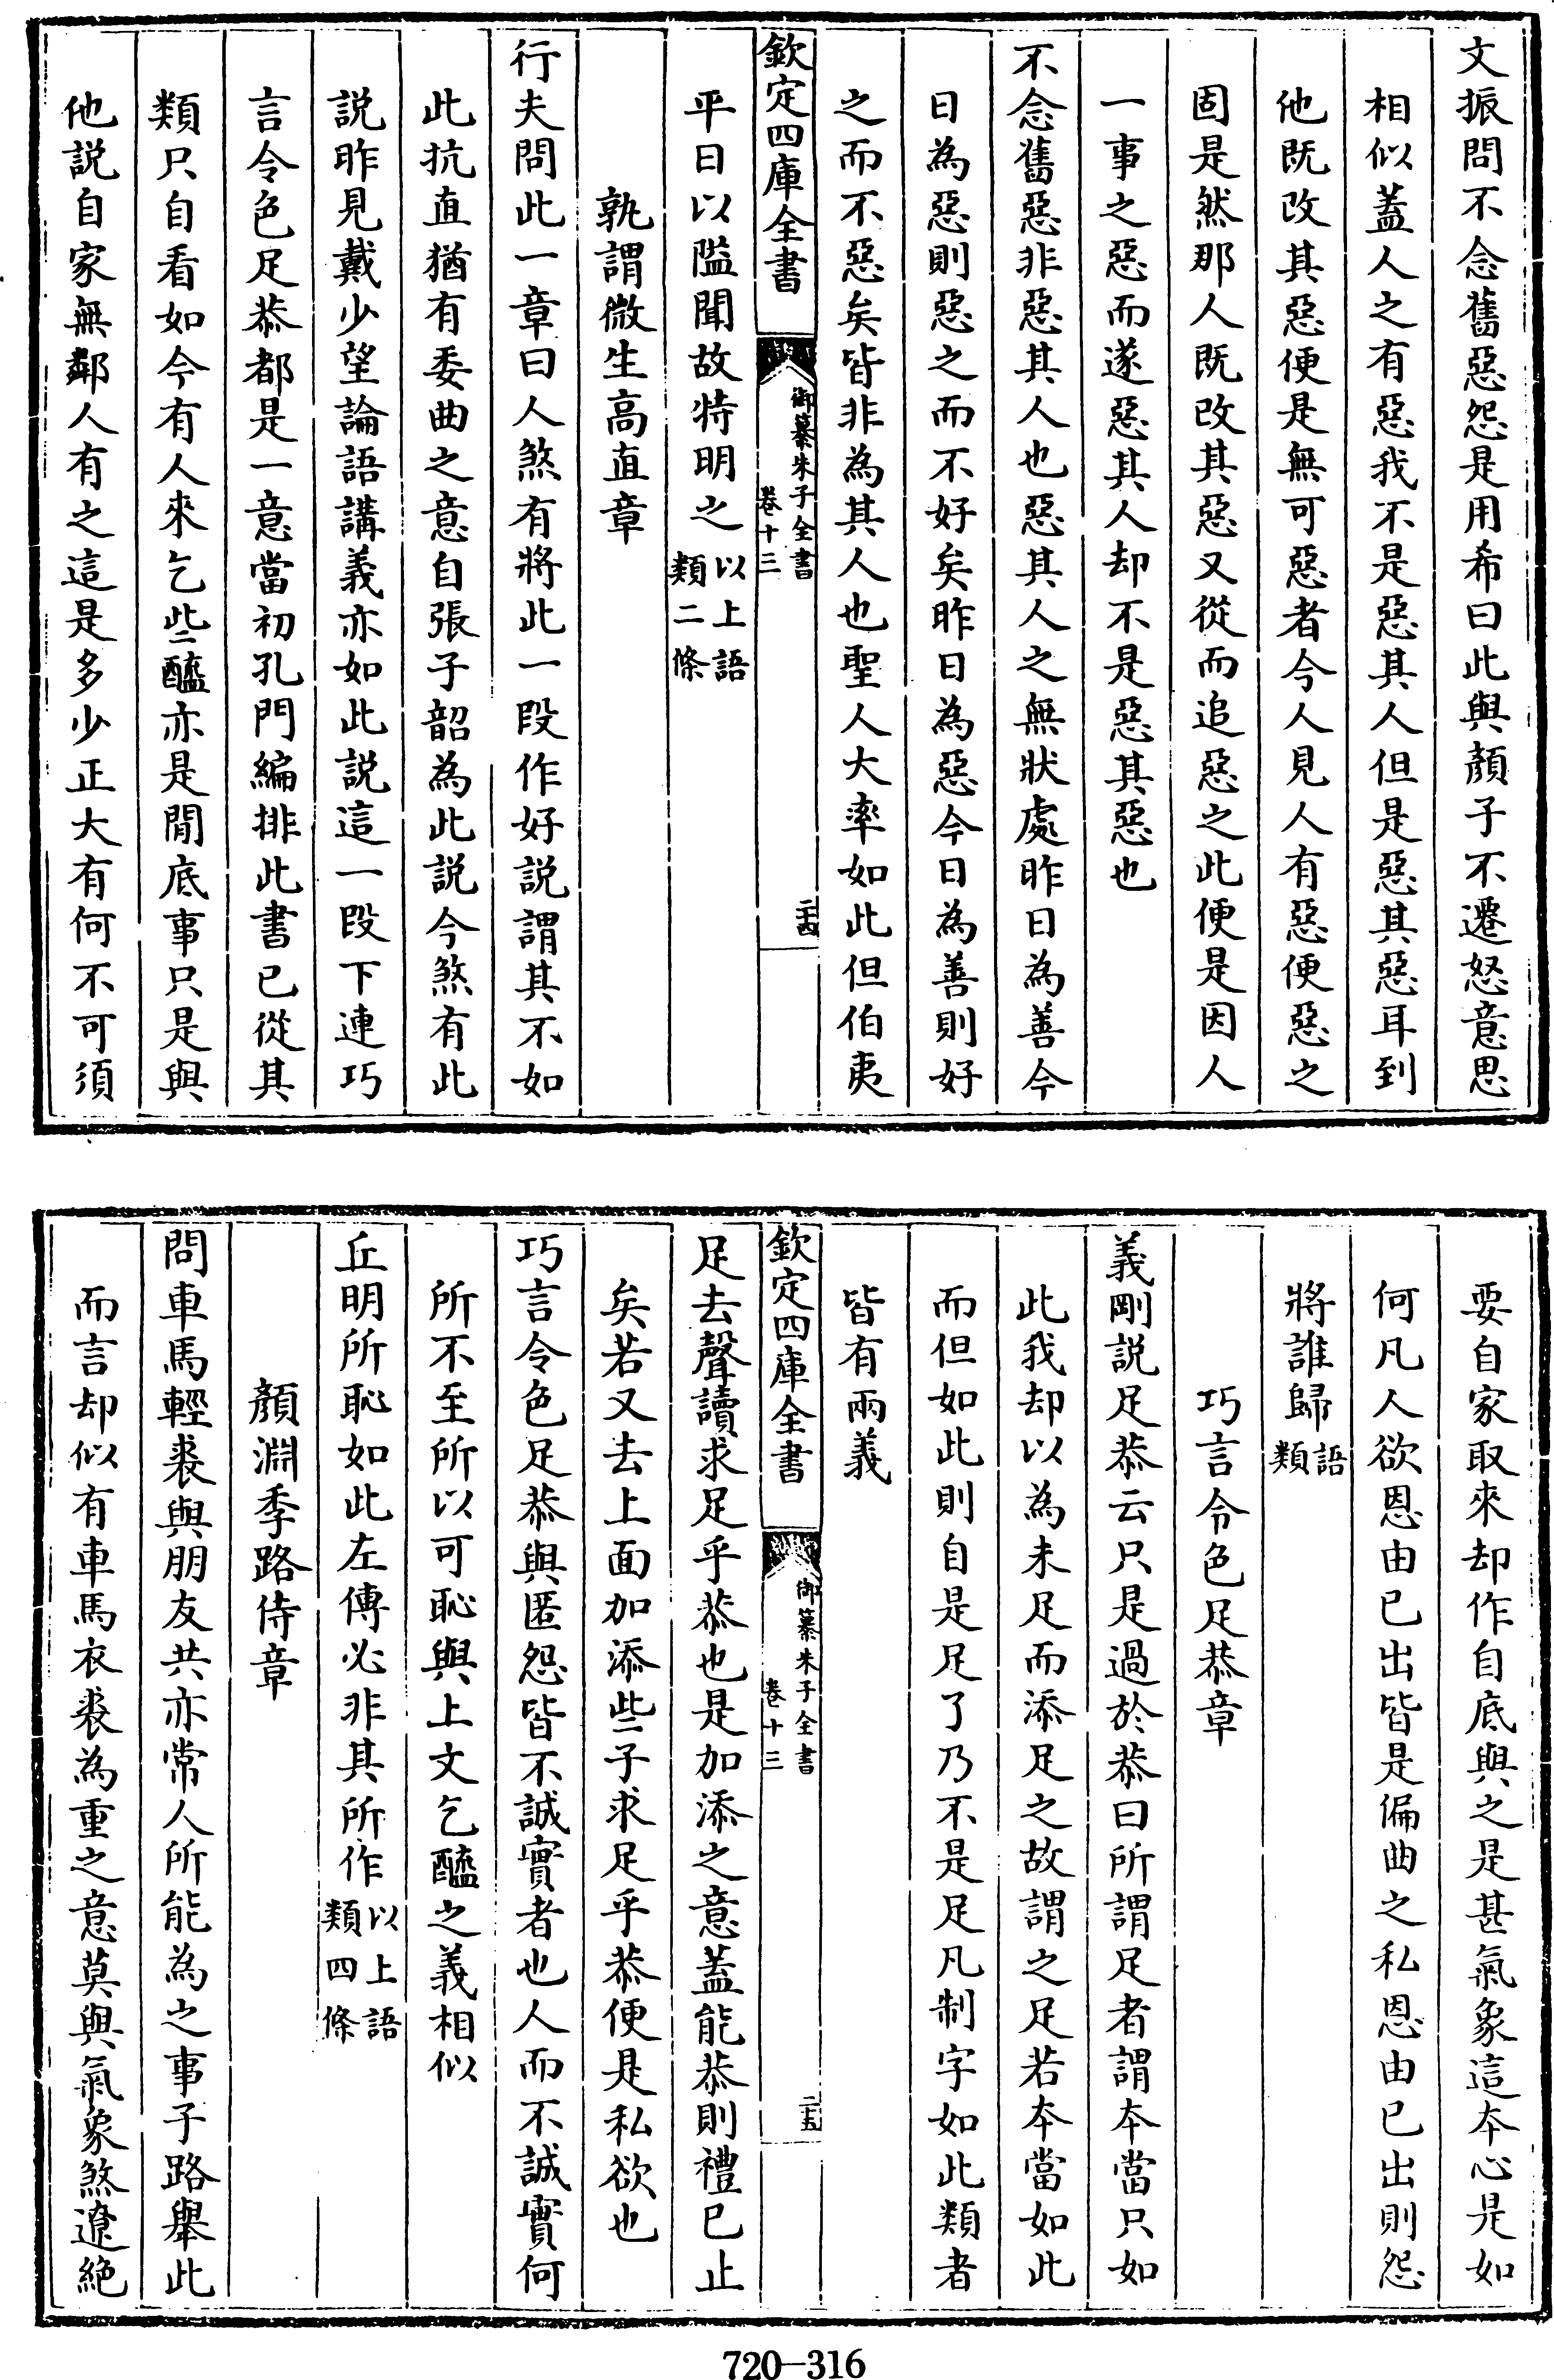 文振問不念舊惡怨是用希曰此與顏子不遷怒意思
相似蓋人之有惡我不是惡其人但是惡其惡耳到
他既改其惡便是無可惡者今人見人有惡便惡之
固是然那人既改其惡又從而追惡之此便是因人
一事之惡而遂惡其人却不是惡其惡也
不念舊惡非惡其人也惡其人之無狀處昨日為善今
日為惡則惡之而不好矣昨日為惡今日為善則好
之而不惡矣皆非為其人也聖人大率如此但伯夷
欽定四庫全書
御纂朱子全書
卷十三
二十四
平日以隘聞故特明之以上語類二條
孰謂微生高直章
行夫問此一章曰人煞有將此一段作好説謂其不如
此抗直猶有委曲之意自張子韶為此説今煞有此
説昨見戴少望論語講義亦如此説這一段下連巧
言令色足恭都是一意當初孔門編排此書已從其
類只自看如今有人來乞些醯亦是閒底事只是與
他説自家無鄰人有之這是多少正大有何不可須
要自家取來却作自底與之是甚氣象這本心是如
何凡人欲恩由己出皆是偏曲之私恩由己出則怨
將誰歸語類
巧言令色足恭章
義剛説足恭云只是過於恭曰所謂足者謂本當只如
此我却以為未足而添足之故謂之足若本當如此
而但如此則自是足了乃不是足凡制字如此類者
皆有兩義
欽定四庫全書
御纂朱子全書
卷十三
二十五
足去聲讀求足乎恭也是加添之意蓋能恭則禮已止
矣若又去上面加添些子求足乎恭便是私欲也
巧言令色足恭與匿怨皆不誠實者也人而不誠實何
所不至所以可恥與上文乞醯之義相似
丘明所恥如此左傳必非其所作以上語類四條
顏淵季路侍章
問車馬輕裘與朋友共亦常人所能為之事子路舉此
而言却似有車馬衣裘為重之意莫與氣象煞遼絶
720-316